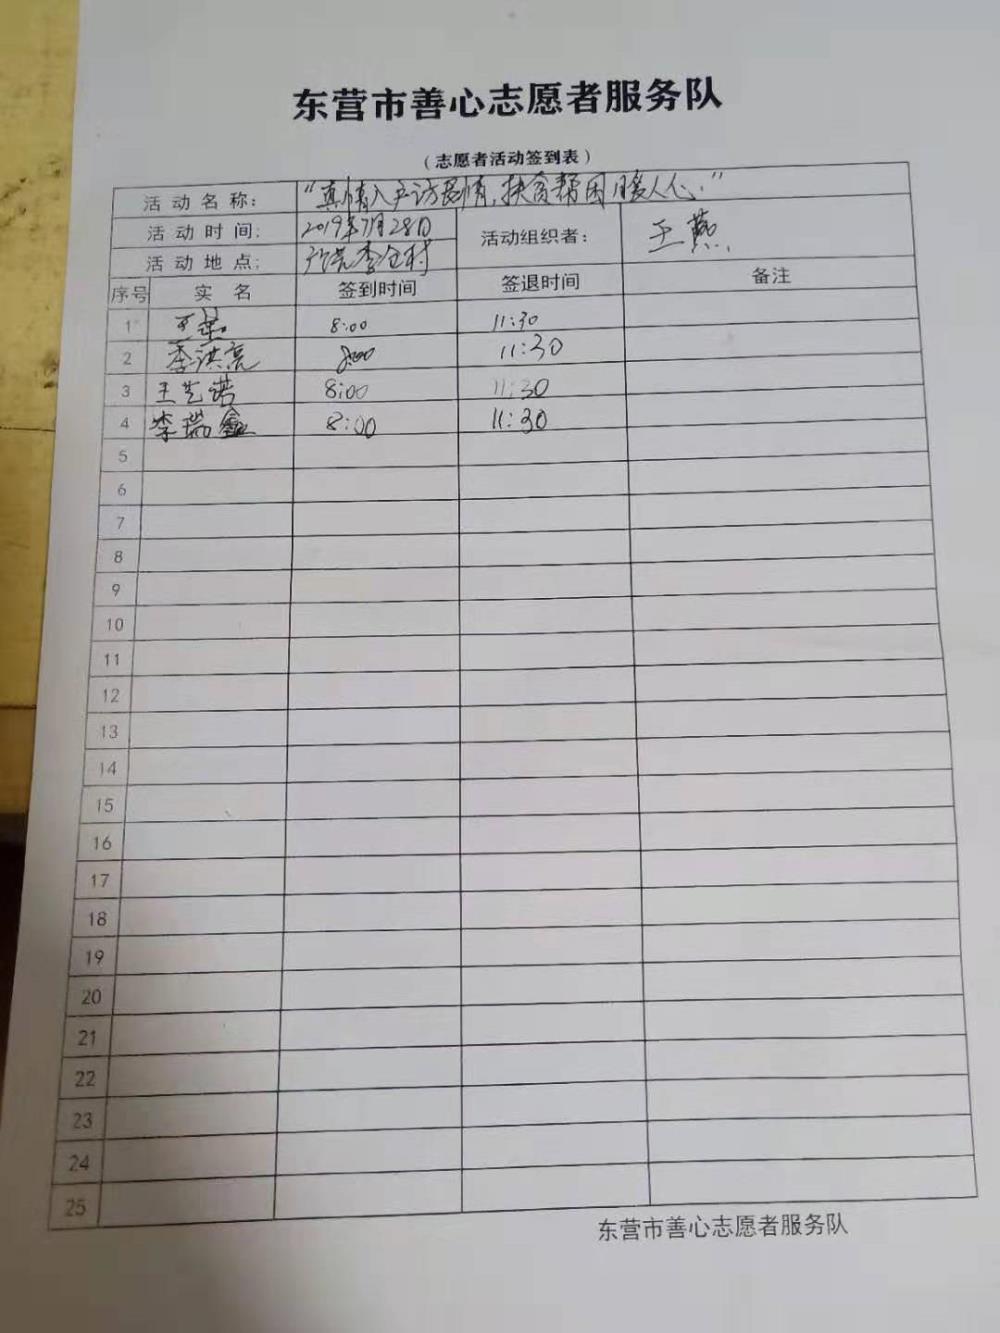 东营市善心志愿者服务队
（志愿者活动签到表）
活动名称： “真情入户访民情，扶贫帮困暖人心”
活动时间： 2019年7月28日 活动组织者： 王燕
活动地点： 李仓村
序号 实名 签到时间 签退时间 备注
1 王燕 8:00 11:30
2 李洪亮 8:00 11:30
3 王艺诺 8:00 11:30
4 李瑞鑫 8:00 11:30
5
6
7
8
9
10
11
12
13
14
15
16
17
18
19
20
21
22
23
24
25
东营市善心志愿者服务队